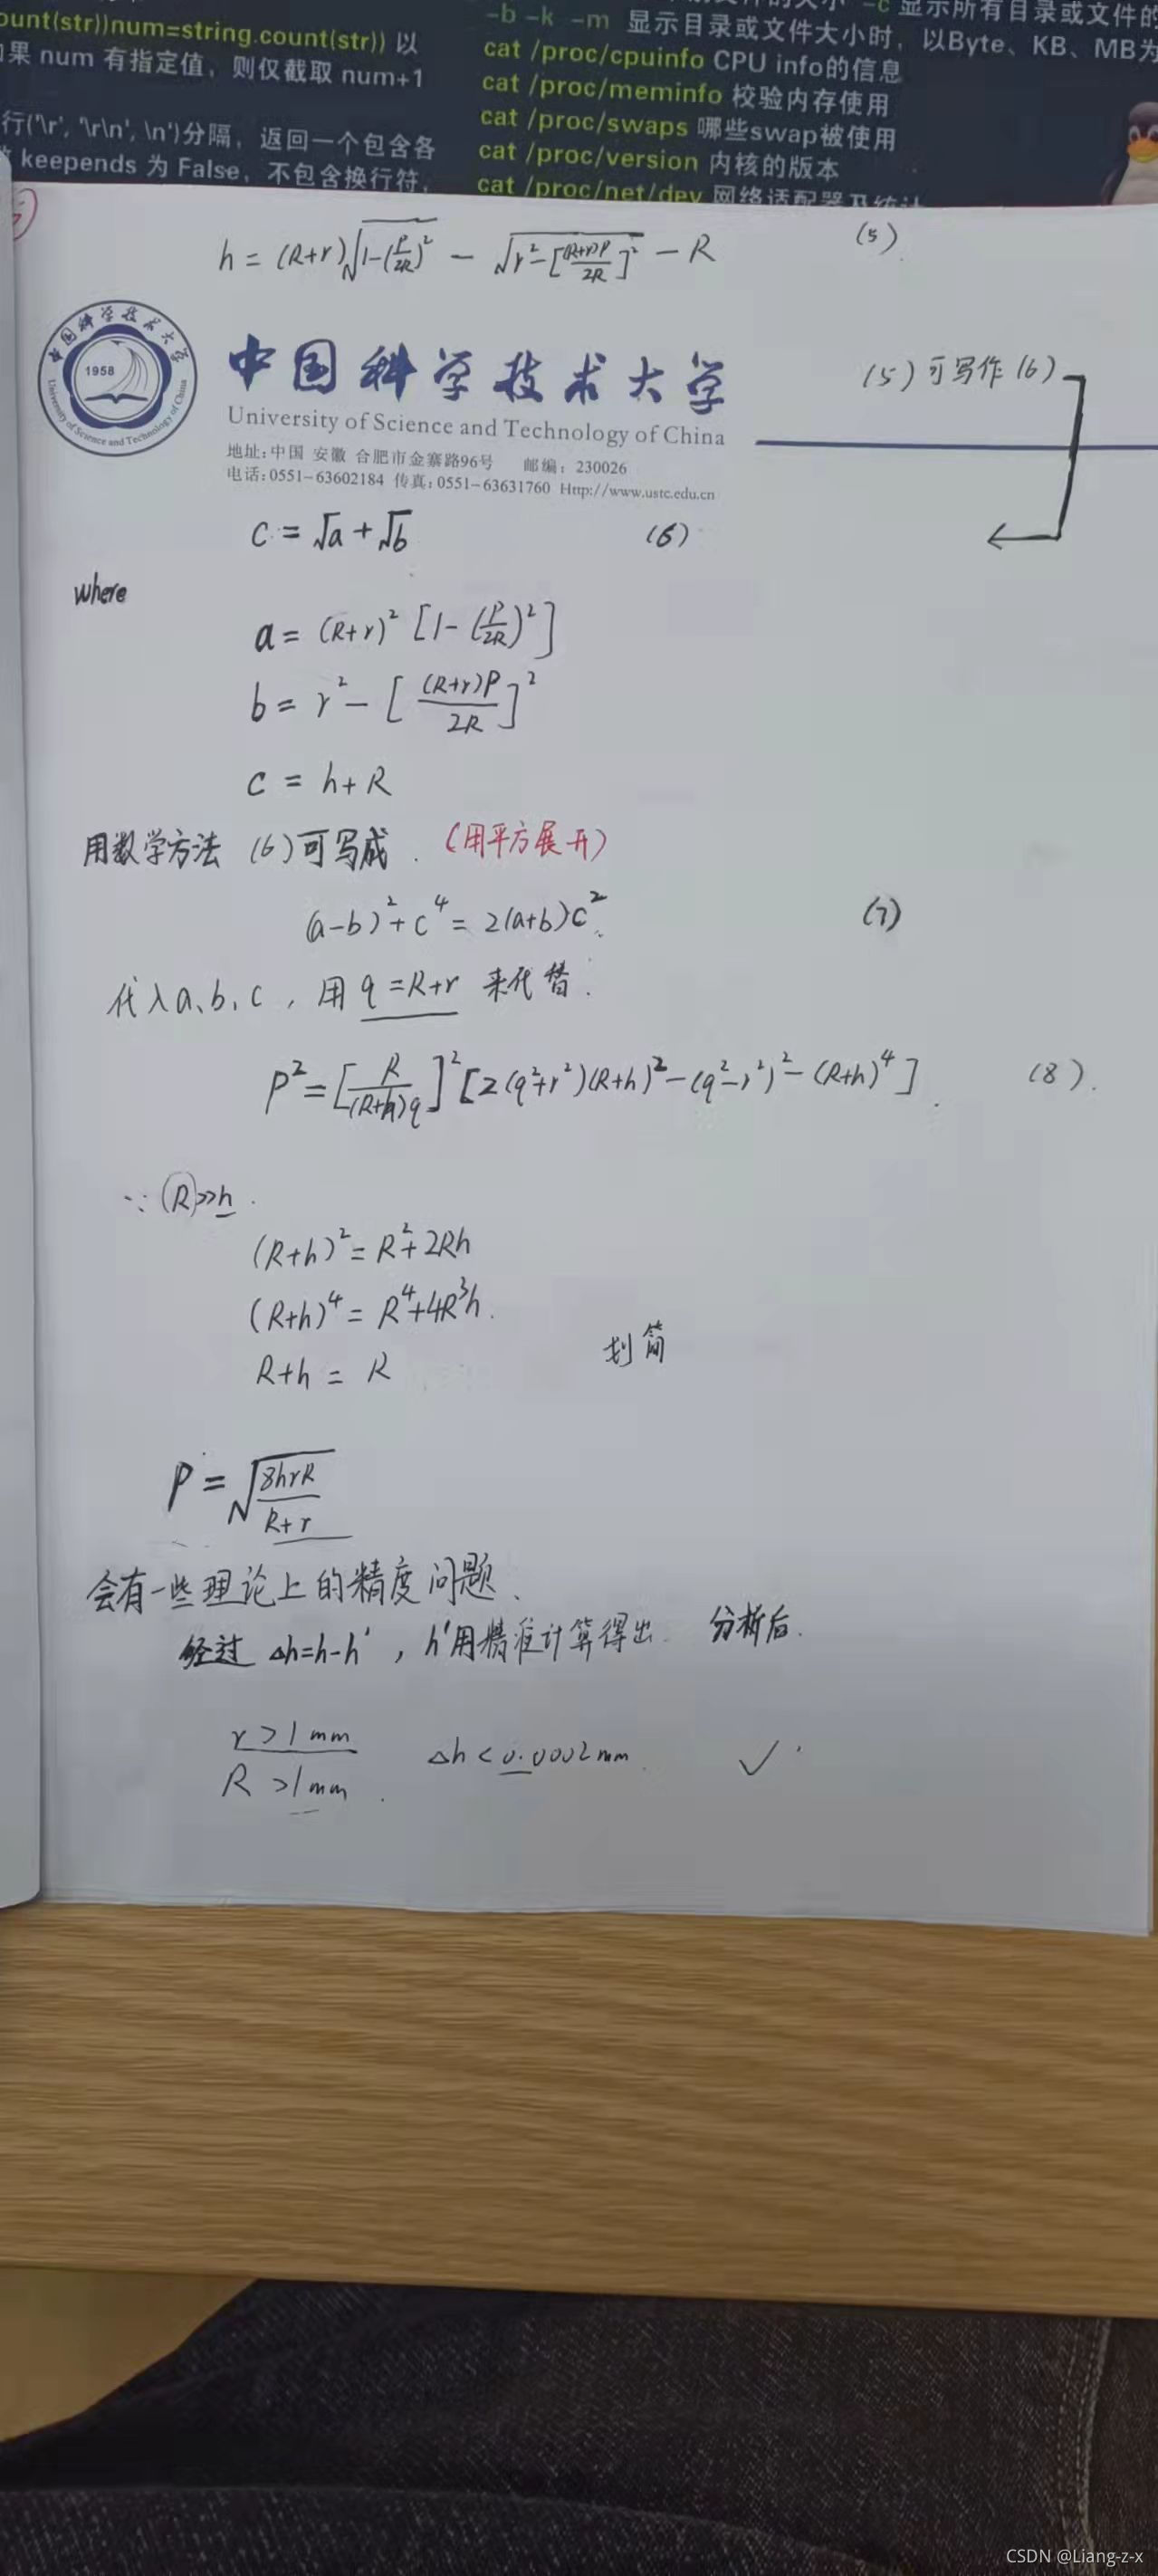 ount(str))num=string.count(str)) 以
果 num 有指定值，则仅截取 num+1
行('\r', '\r\n', \n')分隔，返回一个包含各
keepends 为 False，不包含换行符，
-c 显示所有目录或文件的
-b -k -m 显示目录或文件大小时，以Byte、KB、MB为
cat /proc/cpuinfo CPU info的信息
cat /proc/meminfo 校验内存使用
cat /proc/swaps 哪些swap被使用
cat /proc/version 内核的版本
cat /proc/net/dev 网络适配器及统计
h = (R+r)√(1-(P/2R)²) - √(r²-[(R+r)P/2R]²) - R (5)
中国科学技术大学
1958
University of Science and Technology of China
中国科学技术大学
University of Science and Technology of China
地址:中国 安徽 合肥市金寨路96号 邮编: 230026
电话:0551-63602184 传真:0551-63631760 Http://www.ustc.edu.cn
(5)可写作(6)
c = √a + √b (6)
where
a = (R+r)² [1-(P/2R)²]
b = r² - [(R+r)P/2R]²
c = h+R
用数学方法 (6)可写成. (用平方展开)
(a-b)²+c⁴ = 2(a+b)c². (7)
代入a、b、c，用 q=R+r 来代替.
P² = [R/(R+h)q]² [2(q²+r²)(R+h)²-(q²-r²)²-(R+h)⁴]. (8).
∵ R>>h.
(R+h)² = R²+2Rh
(R+h)⁴ = R⁴+4R³h.
R+h = R
划简
P = √(8hrR/R+r)
会有一些理论上的精度问题、
经过 Δh=h-h'，h'用精准计算得出 分析后.
r>1mm
Δh<0.0002mm. ✓
R>1mm.
CSDN @Liang-z-x